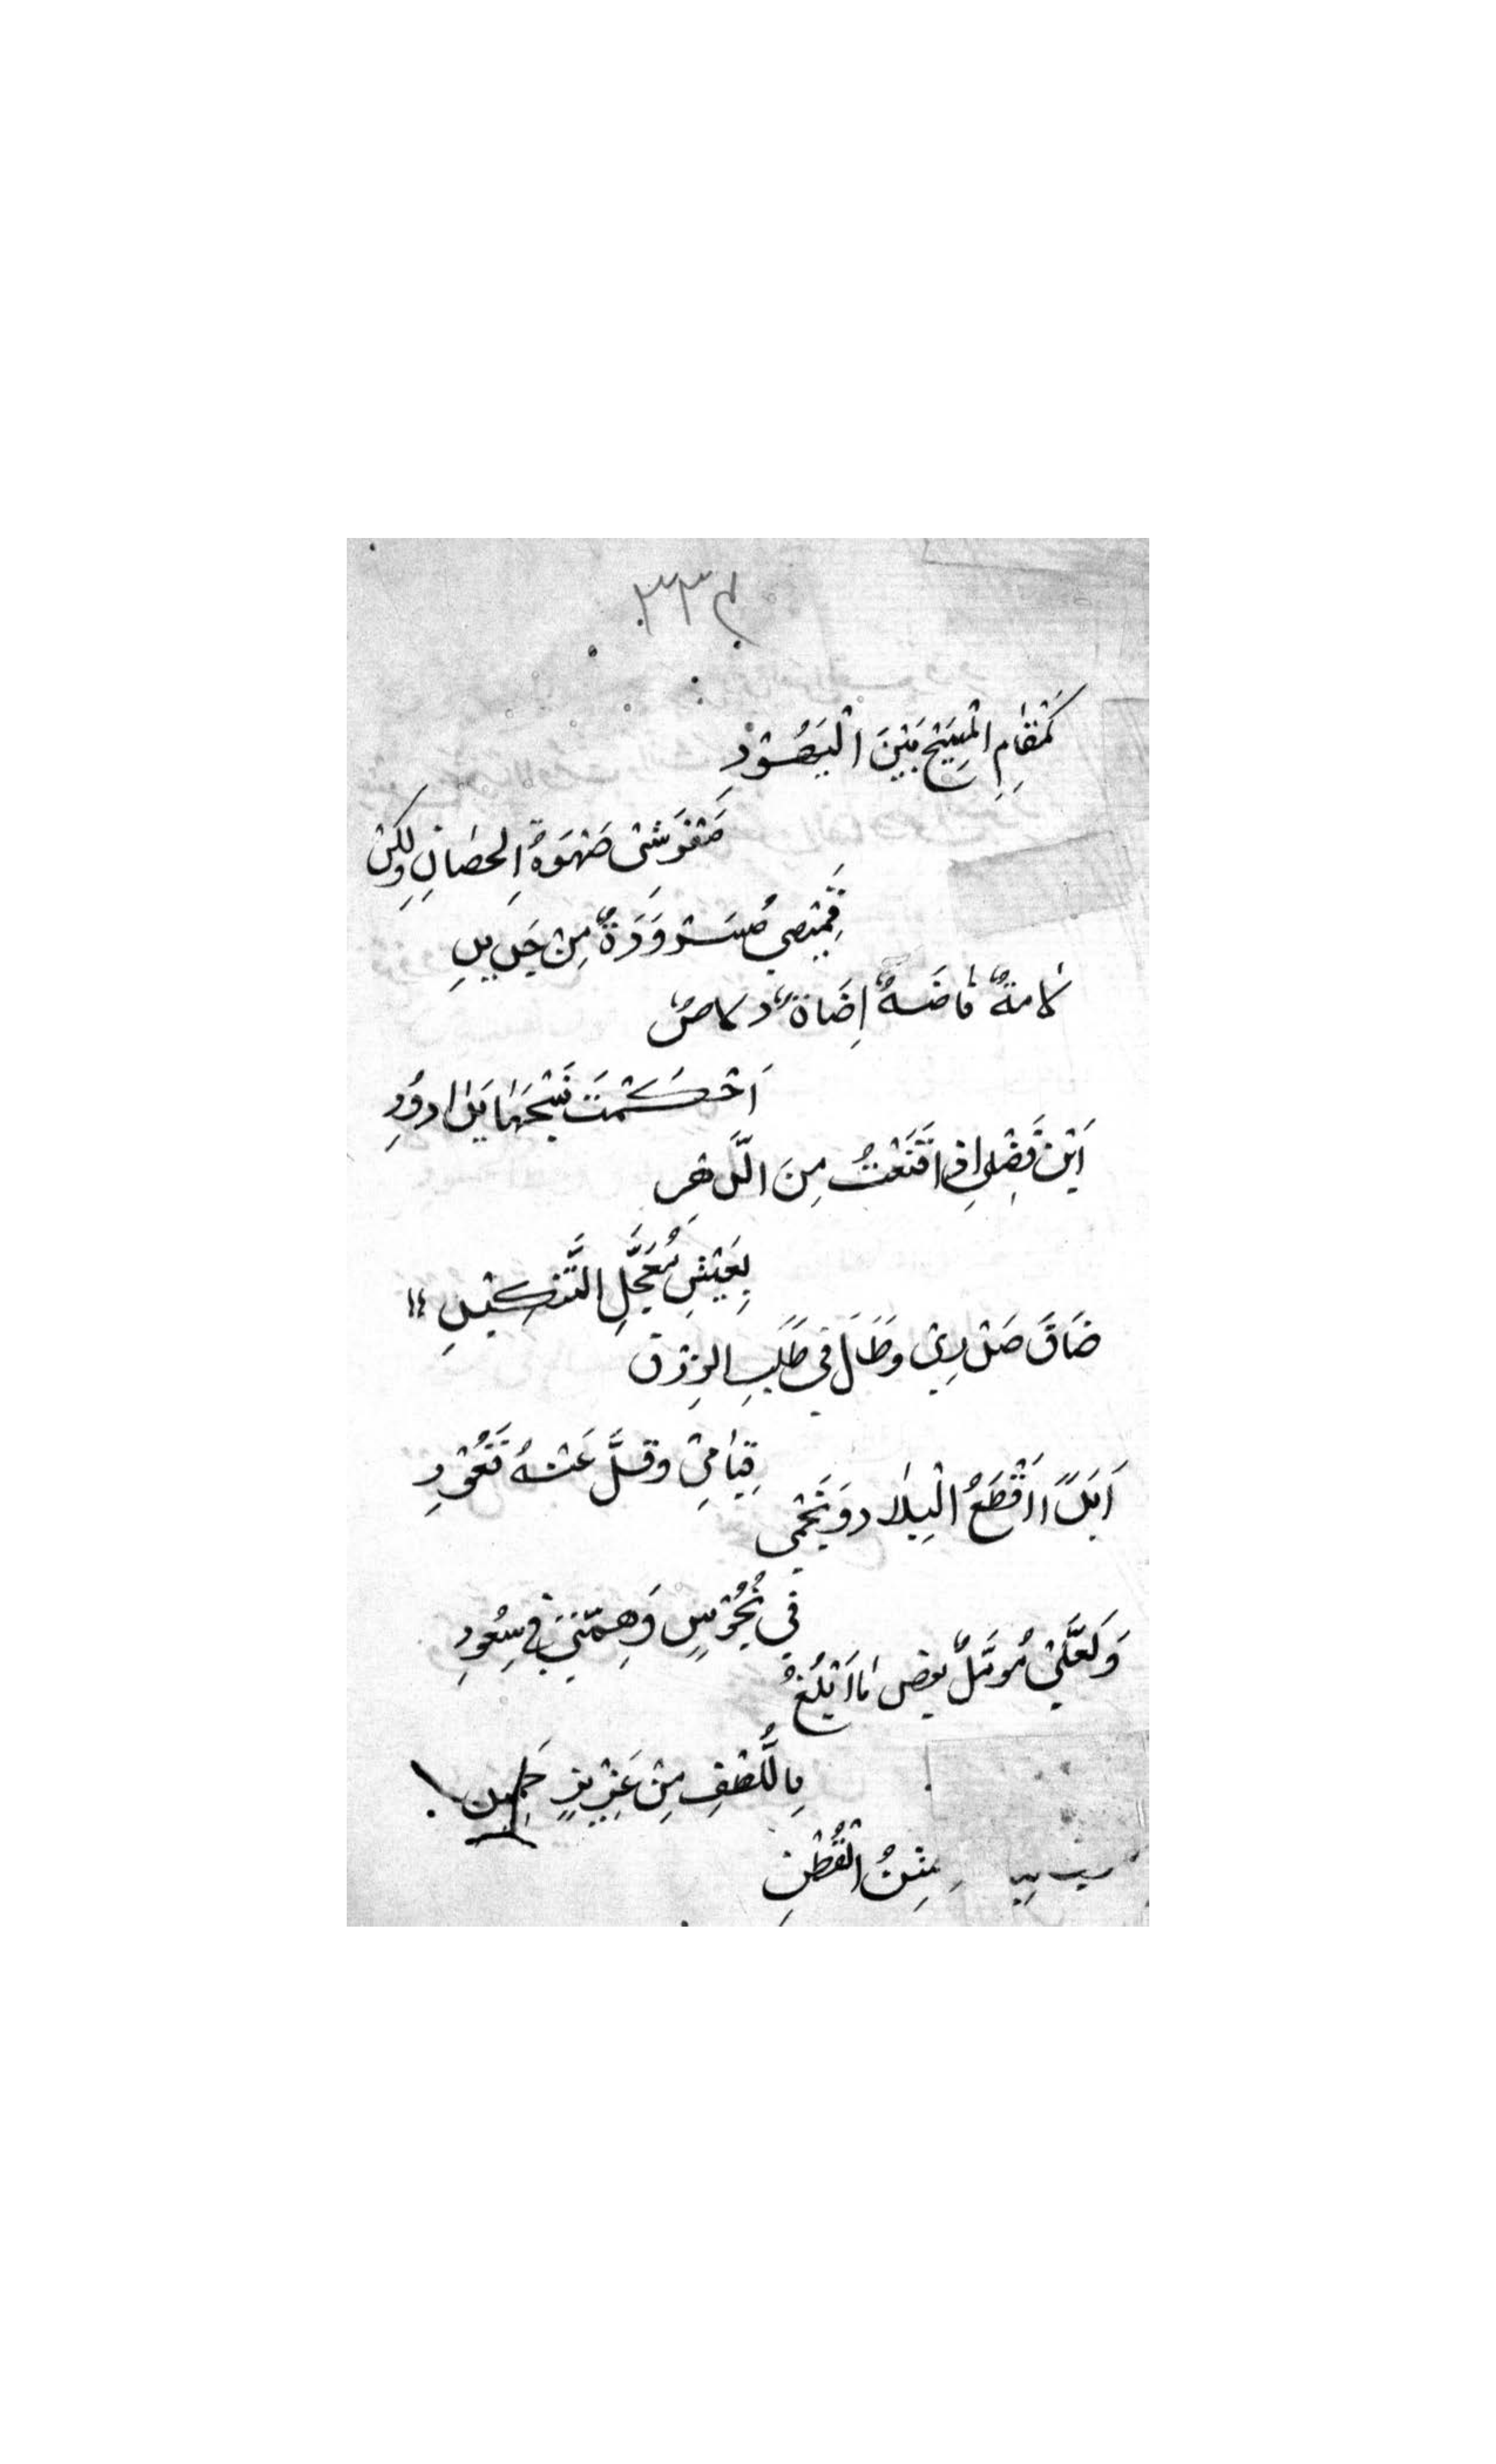 كَمَقَامِ الْمَسِيْحِ بَيْنَ الْيَهُوْدِ
مَفْرَشِيْ صَهْوَةُ الحِصَانِ وَلٰكِنْ
قَمِيْصِيْ مَسْرُوْدَةٌ مِنْ حَدِيْدِ
لامةٌ فَاضَةٌ اِضَاةٌ دلاصٌ
اَحْكَمَتْ نَسْجَهَا يَدَا دوُدِ
اَيْنَ فَضْلِيْ اِذَا قَنَعْتُ مِنَ الدَّهْرِ
بِعَيْشٍ مُعَجَّلِ التَّنْكِيْدِ
ضَاقَ صَدْرِيْ وطَالَ فِيْ طَلَبِ الرِّزْقِ
قِيَامِيْ وقلَّ عَنْهُ قُعُوْدِ
اَبَدًا اَقْطَعُ الْبِلَادَ وَنَجْمِى
فِيْ نُحُوْسٍ وَهِمَّتِيْ فِي سُعُوْدِ
وَلَعَلِّيْ مُوَمِّلٌ بَعْضَ مَا اَبْلُغُ
بِاللُّطْفِ مِنْ عَزِيْزٍ حَمِيْدِ
الْقُطْنِ